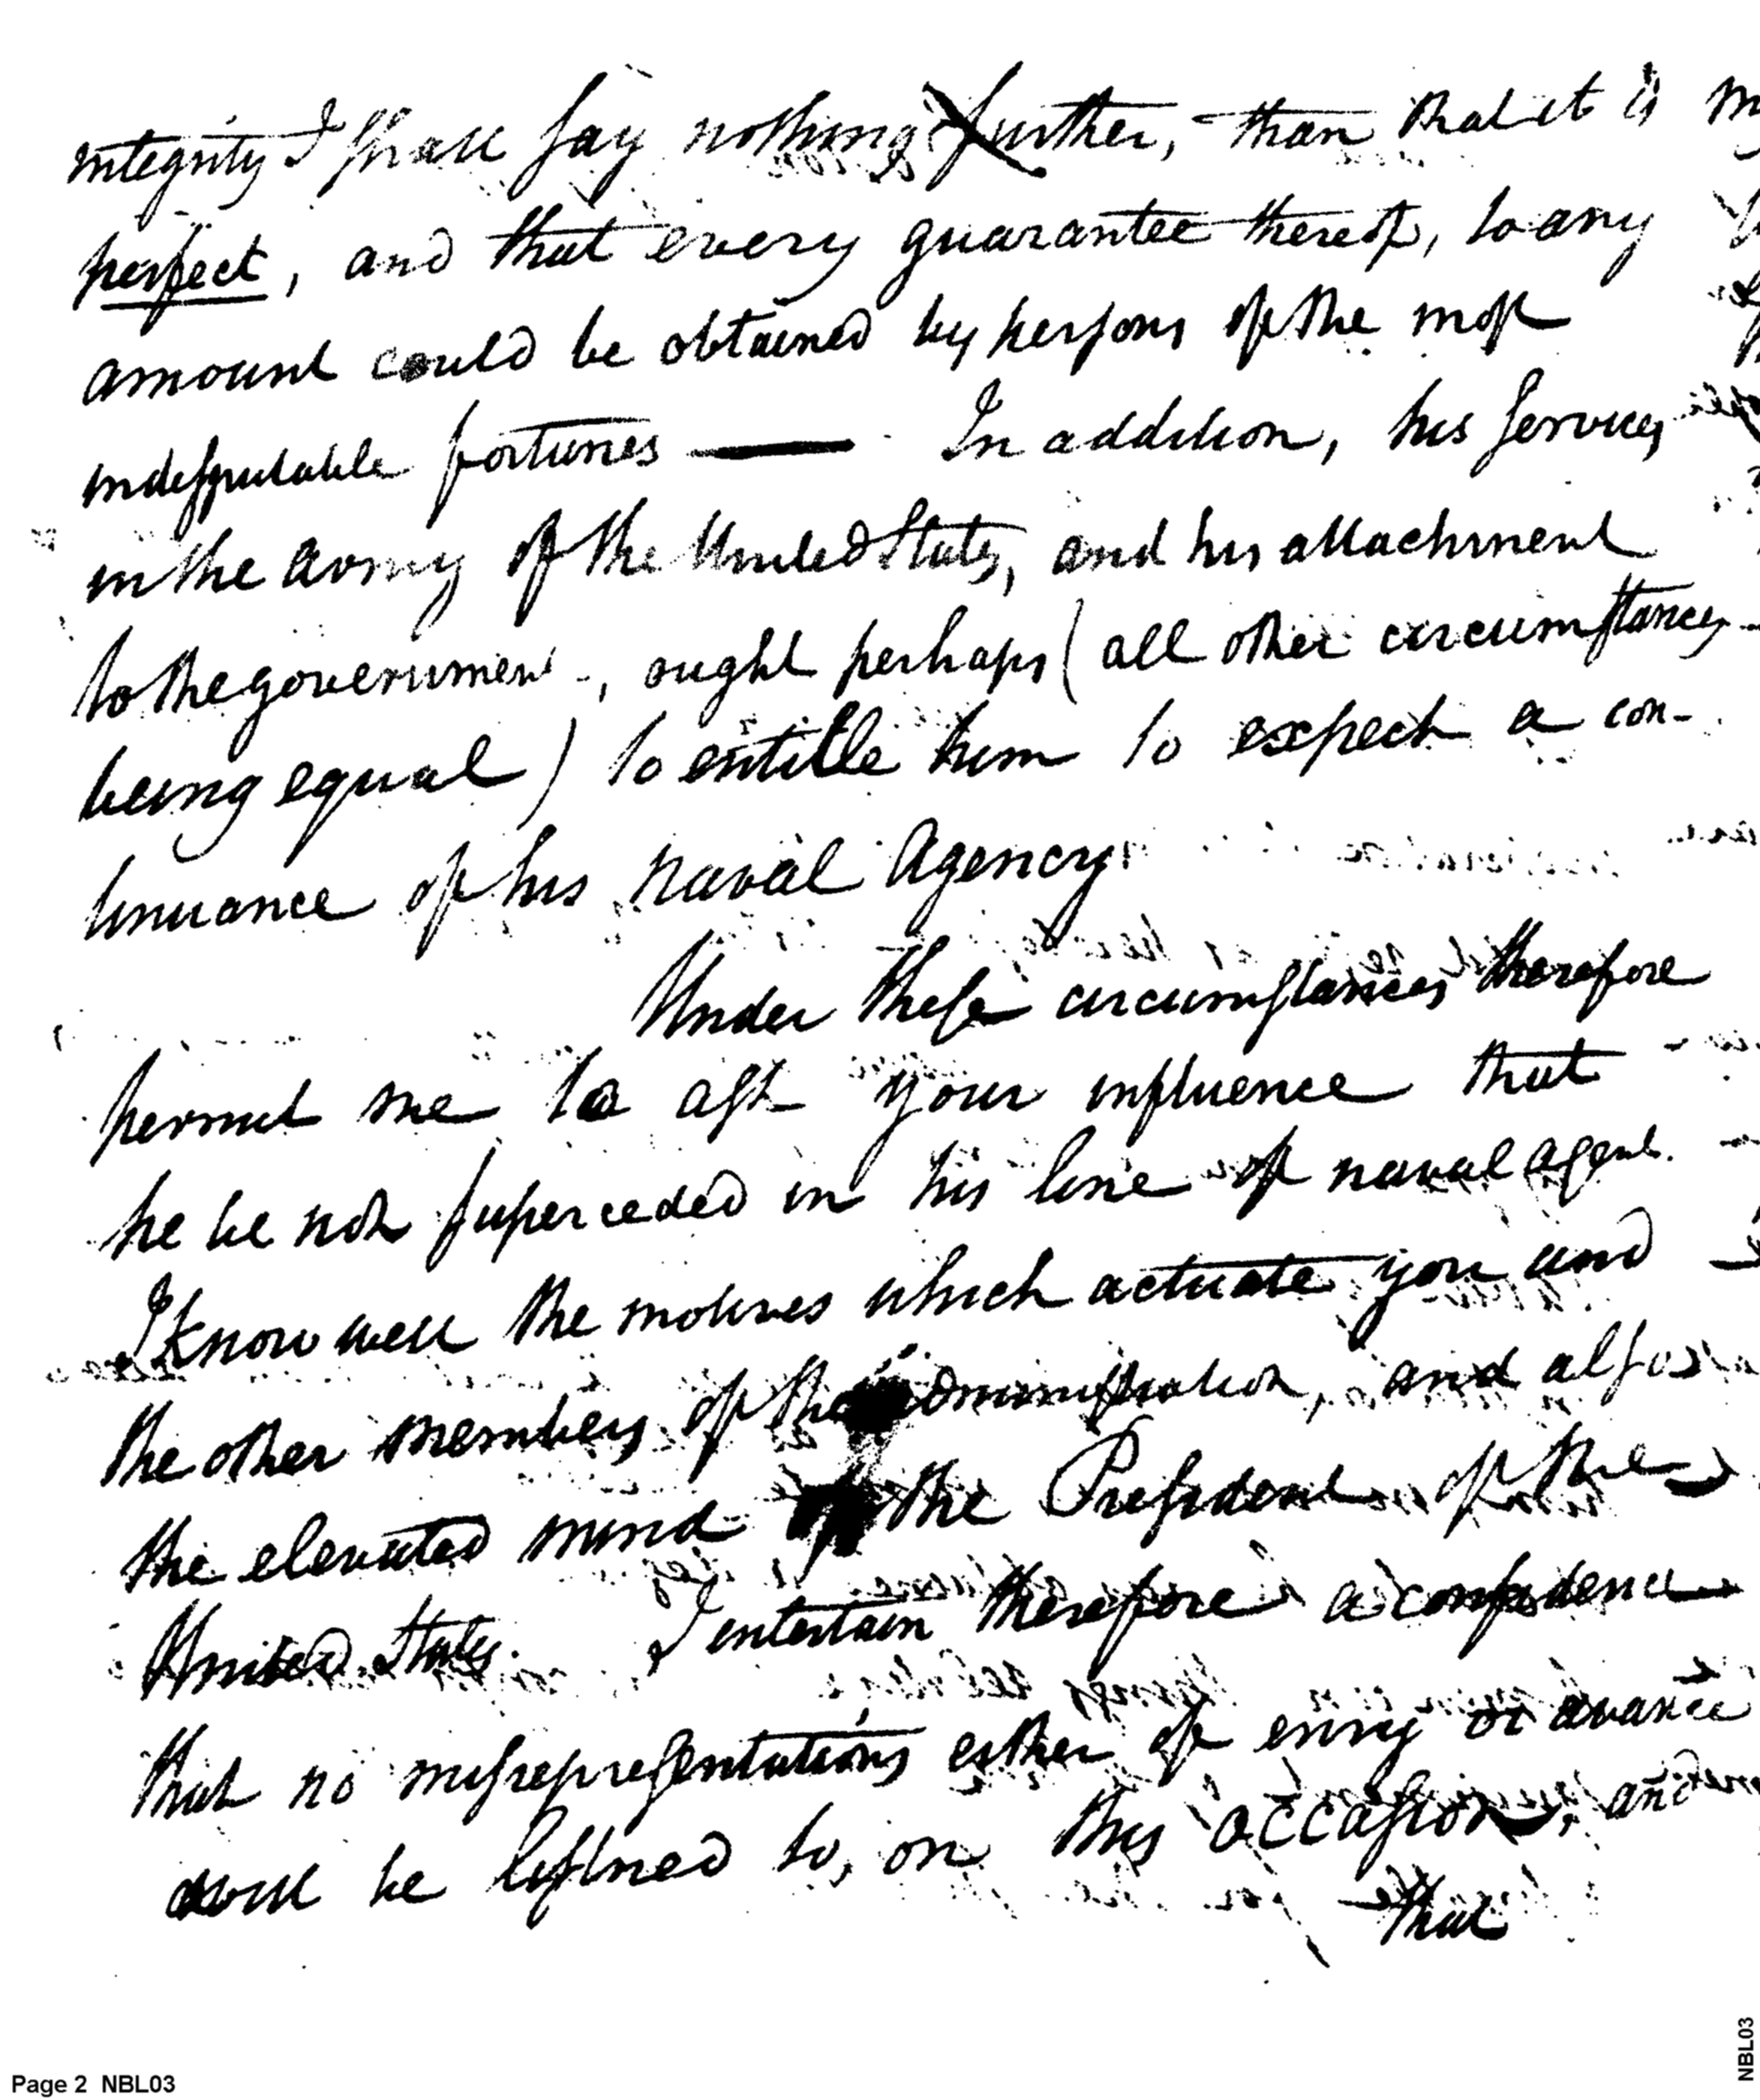 integrity I shall say nothing further, than that it is
perfect, and that every guarantee thereof, to any
amount could be obtained by persons of the most
indisputable fortunes — In addition, his services
in the army of the United States, and his attachment
to the government, ought perhaps (all other circumstances
being equal) to entitle him to expect a con-
tinuance of his naval Agency
Under these circumstances therefore
permit me to ask your influence that
he be not superceded in his line of naval agent.
I know well the motives which actuate you and
the other members of the administration, and also
the elevated mind of the President of the
United States. I entertain therefore a confidence
that no misrepresentations either of envy or avarice
will be listned to, on this occasion, and
that
Page 2 NBL03
NBL03